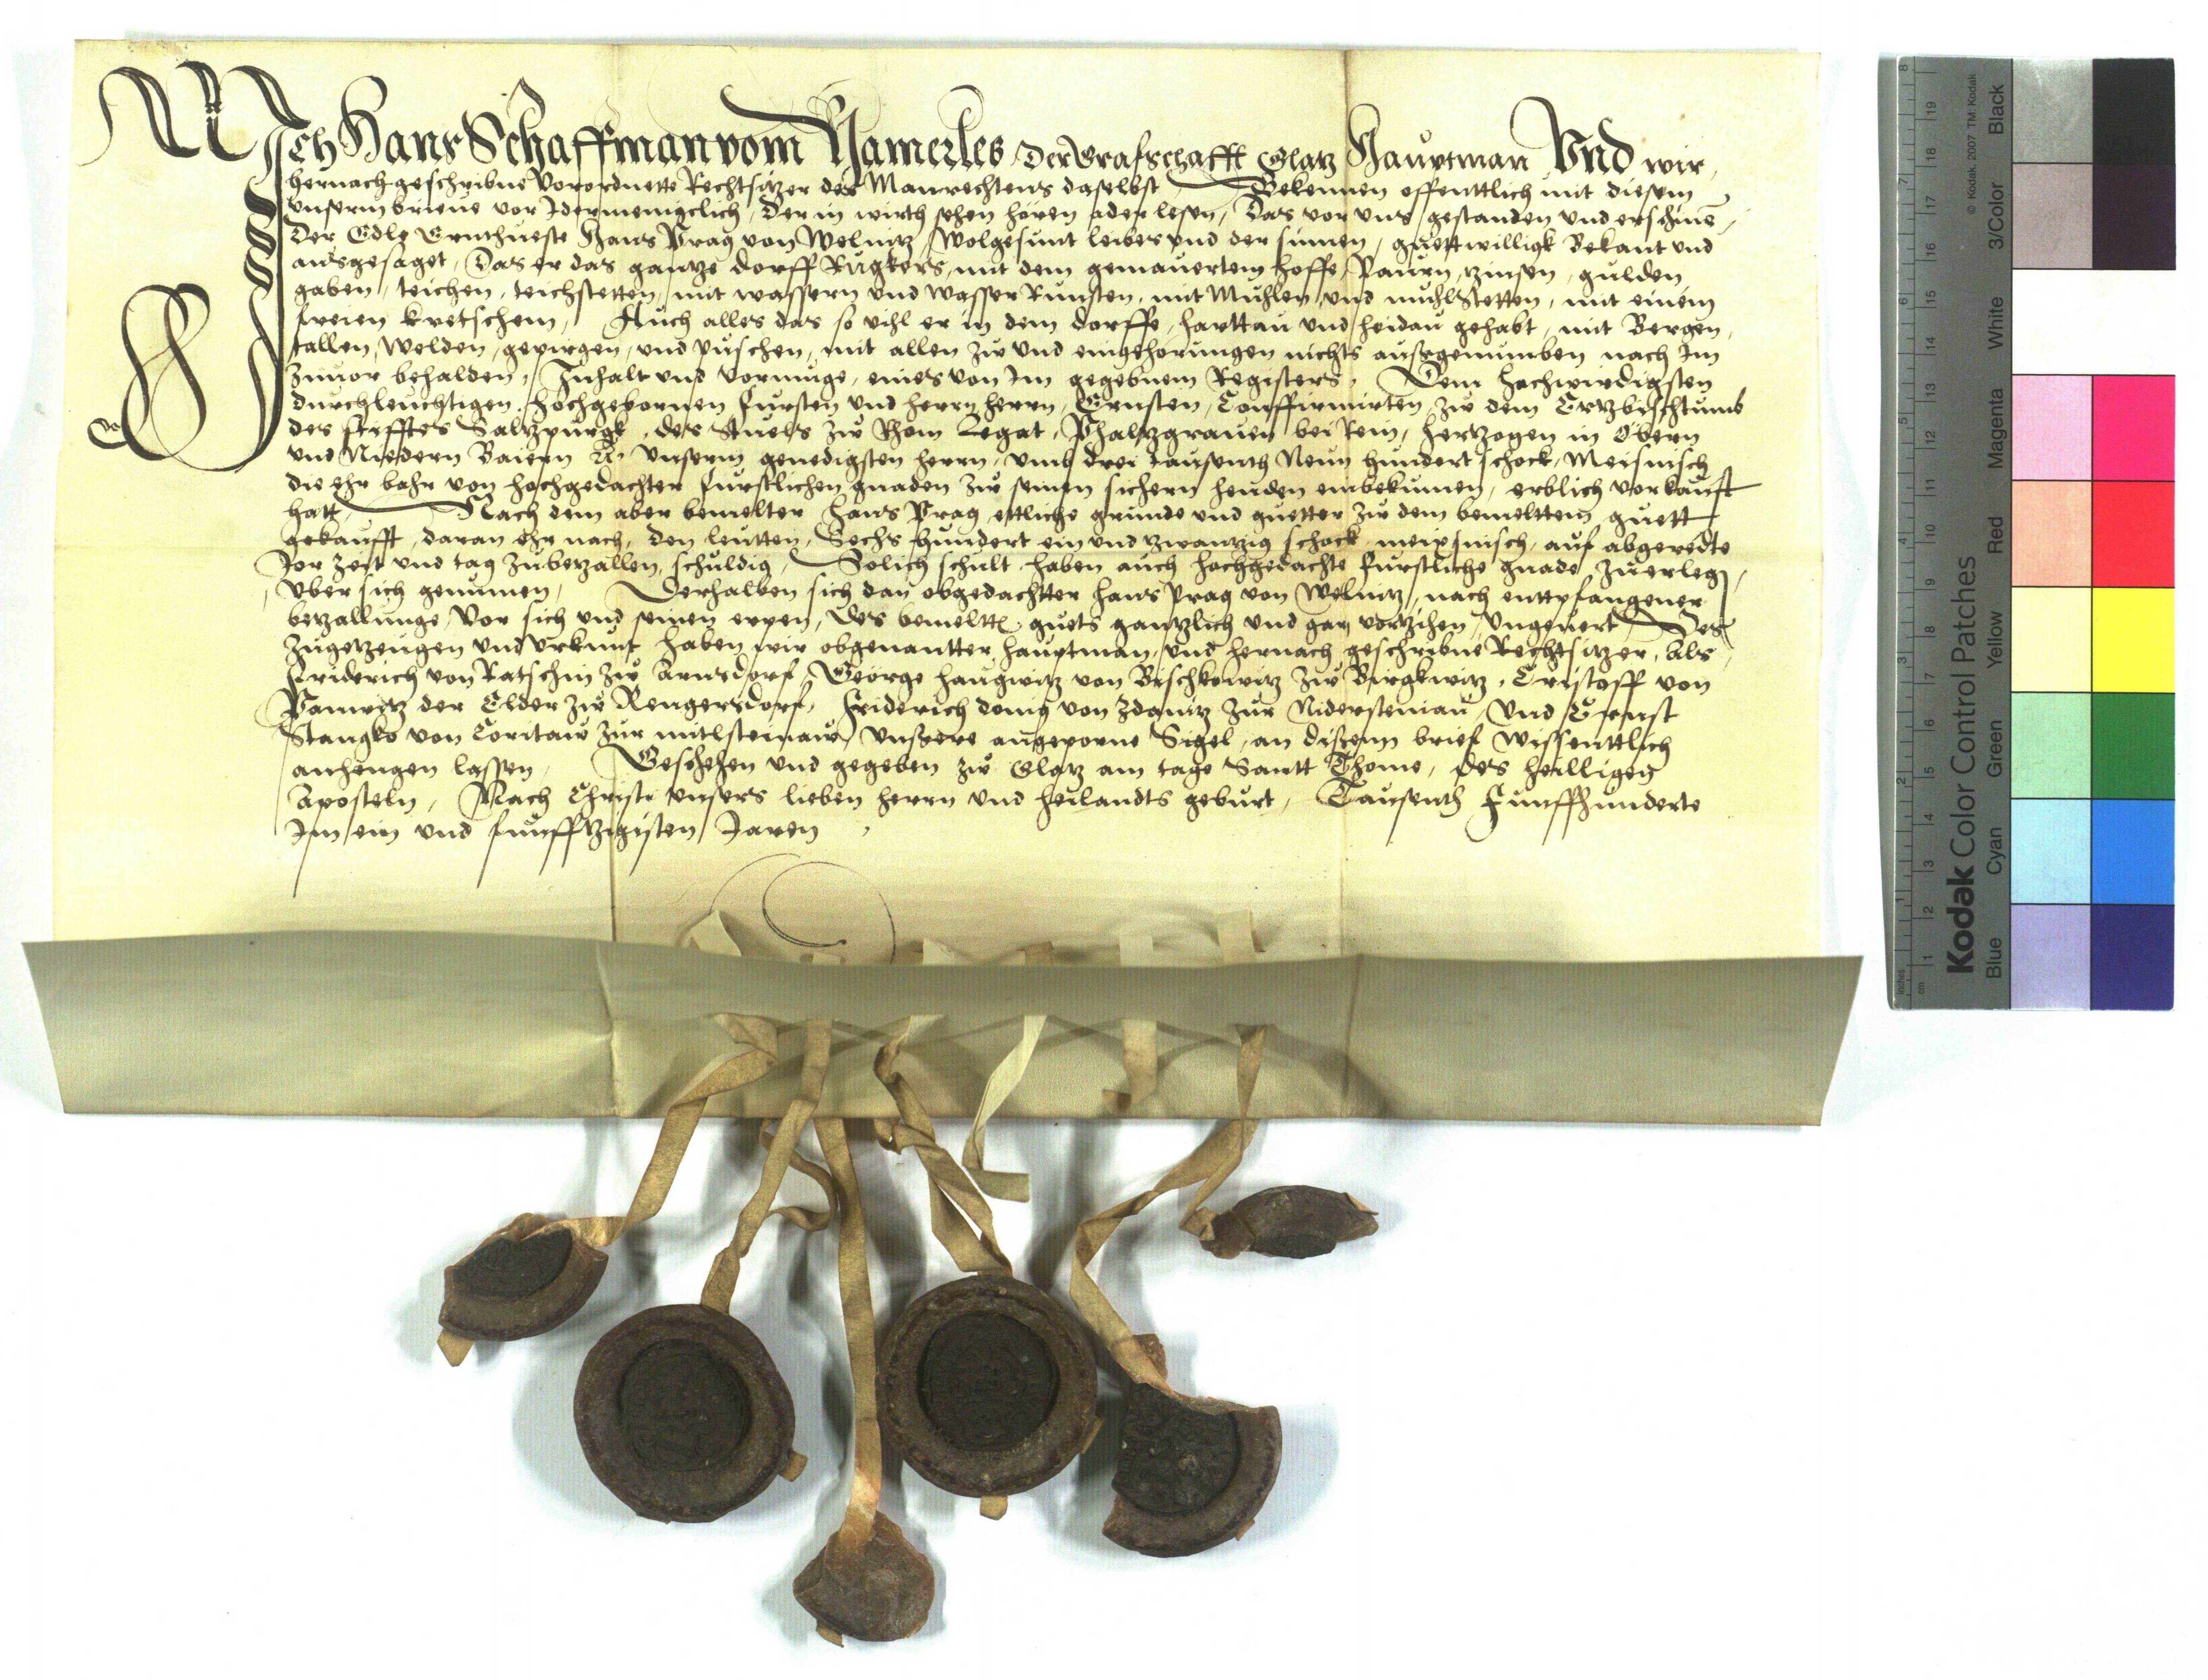 Ich Hans Schaffman vom Hamerles Der Grafschafft Glatz Hauptman Vnd wir,
hernach geschribne Vorordnette Rechtsitzer des Manrechtens daselbst Bekennen offenttlich mit diesem
Vnserm brieue vor Idermeniglich, Der in wirth sehen hören oder lesen, Das vor vns gestanden vnd erschinē,
Der Edle Ernthueste Hans Prag von Welnitz, Wolgesunt leibes vnd der sinnen, guettwilligk Bekant vnd
ausgesaget, Das er das gantze dorff Rugkers, mit dem gemauertem hoffe, Paurn, zinsen, gulden
gaben, teichen, teichstetten, mit wassern vnd wasser Runsten, mit Muhlen vnd muhlstetten, mit einem
freien kretschem, Auch alles das so vihl er in dem dorffe, harttau vnd heidau gehabt, mit Bergen,
tallen, Welden, gepirgen, vnd puschen, mit allen zw vnd eingehorungen nichts aussgenumben nach Im
zuuor behalden, Inhalt vnd vormuge, eines von Im gegebnem Registers, Dem hochwirdigsten
durchleuchtigen hochgebornen fursten vnd herrn herrn, Ernsten, Confirmirten zw dem Ertzbischtumb
des stifftes Saltzpurgk, des Stuels zw Rom Legat, Phaltzgrauen bei Rein, hertzogen in Obern
vnd Niedern Baiern &c Vnserm genedigsten herrn, vmb drei tausenth Neun hundert schock, Meisnisch
die ehr bahr von hochgedachter furstlichen gnaden zw seinen sichern henden einbekumen, erblich vorkauft
hatt Nach dem aber bemelter hans Prag ettliche grunde vnd guetter zw dem bemelttem guett
gekaufft, daran ehr nach, den leutten, Sechs hundert ein vnd zwantzig schock meixsnisch, auf abgeredte
Jor zeit vnd tag zubetzallen, schuldig, Solich schult haben auch hochgedachte furstliche gnade zuerleg,
Vber sich genumen, Derhalben sich dan obgedachtter hans Prag von Welnitz, nach enttpfangener
betzallunge, Vor sich vnd seinen erpen, Des bemeltt guets gantzlich vnd gar vortzihen, Vngeuert Des
zugetzeugen vnd Vrkunt haben wir obgenantter hauptman, vnd hernach geschribne Rechtsitzer, Als,
Friderich von Ratschin zw Arnsdorf, George haugwitz von Bischkowitz zw Birgkwitz, Cristoff von
Panwitz der Elder zw Rengersdorf, Friderich denig von zdanitz zur Nidersteinau, Vnd Ernst
Stangko von Coritaw zur mitlsteinaw, Vnssere angeporne Sigel, an dissem brief wissenttlich
anhengen lassen, Geschehen vnd gegeben zw Glatz am tage Santt Thome, des heilligen
Aposteln, Nach Christi vnsers lieben herrn vnd heilandts geburt, Tausenth Funffhunderte
Im ein vnd funfftzigisten Jaren
Kodak Color Control Patches
© Kodak, 2007 TM: Kodak
Blue Cyan Green Yellow Red Magenta White 3/Color Black
inches 1 2 3 4 5 6 7 8
cm 1 2 3 4 5 6 7 8 9 10 11 12 13 14 15 16 17 18 19